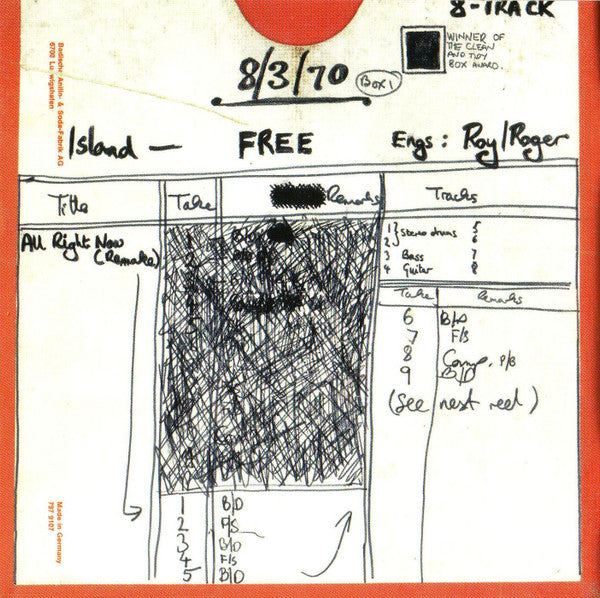 8-TRACK
WINNER OF
THE CLEAN
AND TIDY
BOX AWARD.
8/3/70
BOX 1
Badische Anilin- & Soda-Fabrik AG
6700 Lu wigshafen
Island — FREE Engs: Roy/Roger
Title Take Remarks Tracks
All Right Now
(Remake)
1 } Stereo drums 5
2 } 6
3 Bass 7
4 Guitar 8
Take Remarks
6 B/D
7 F/S
8 Comp. P/B
9 B/D
(See next reel)
1 B/D
2 F/S
3 B/D
4 F/S
5 B/D
Made in Germany
797 9107